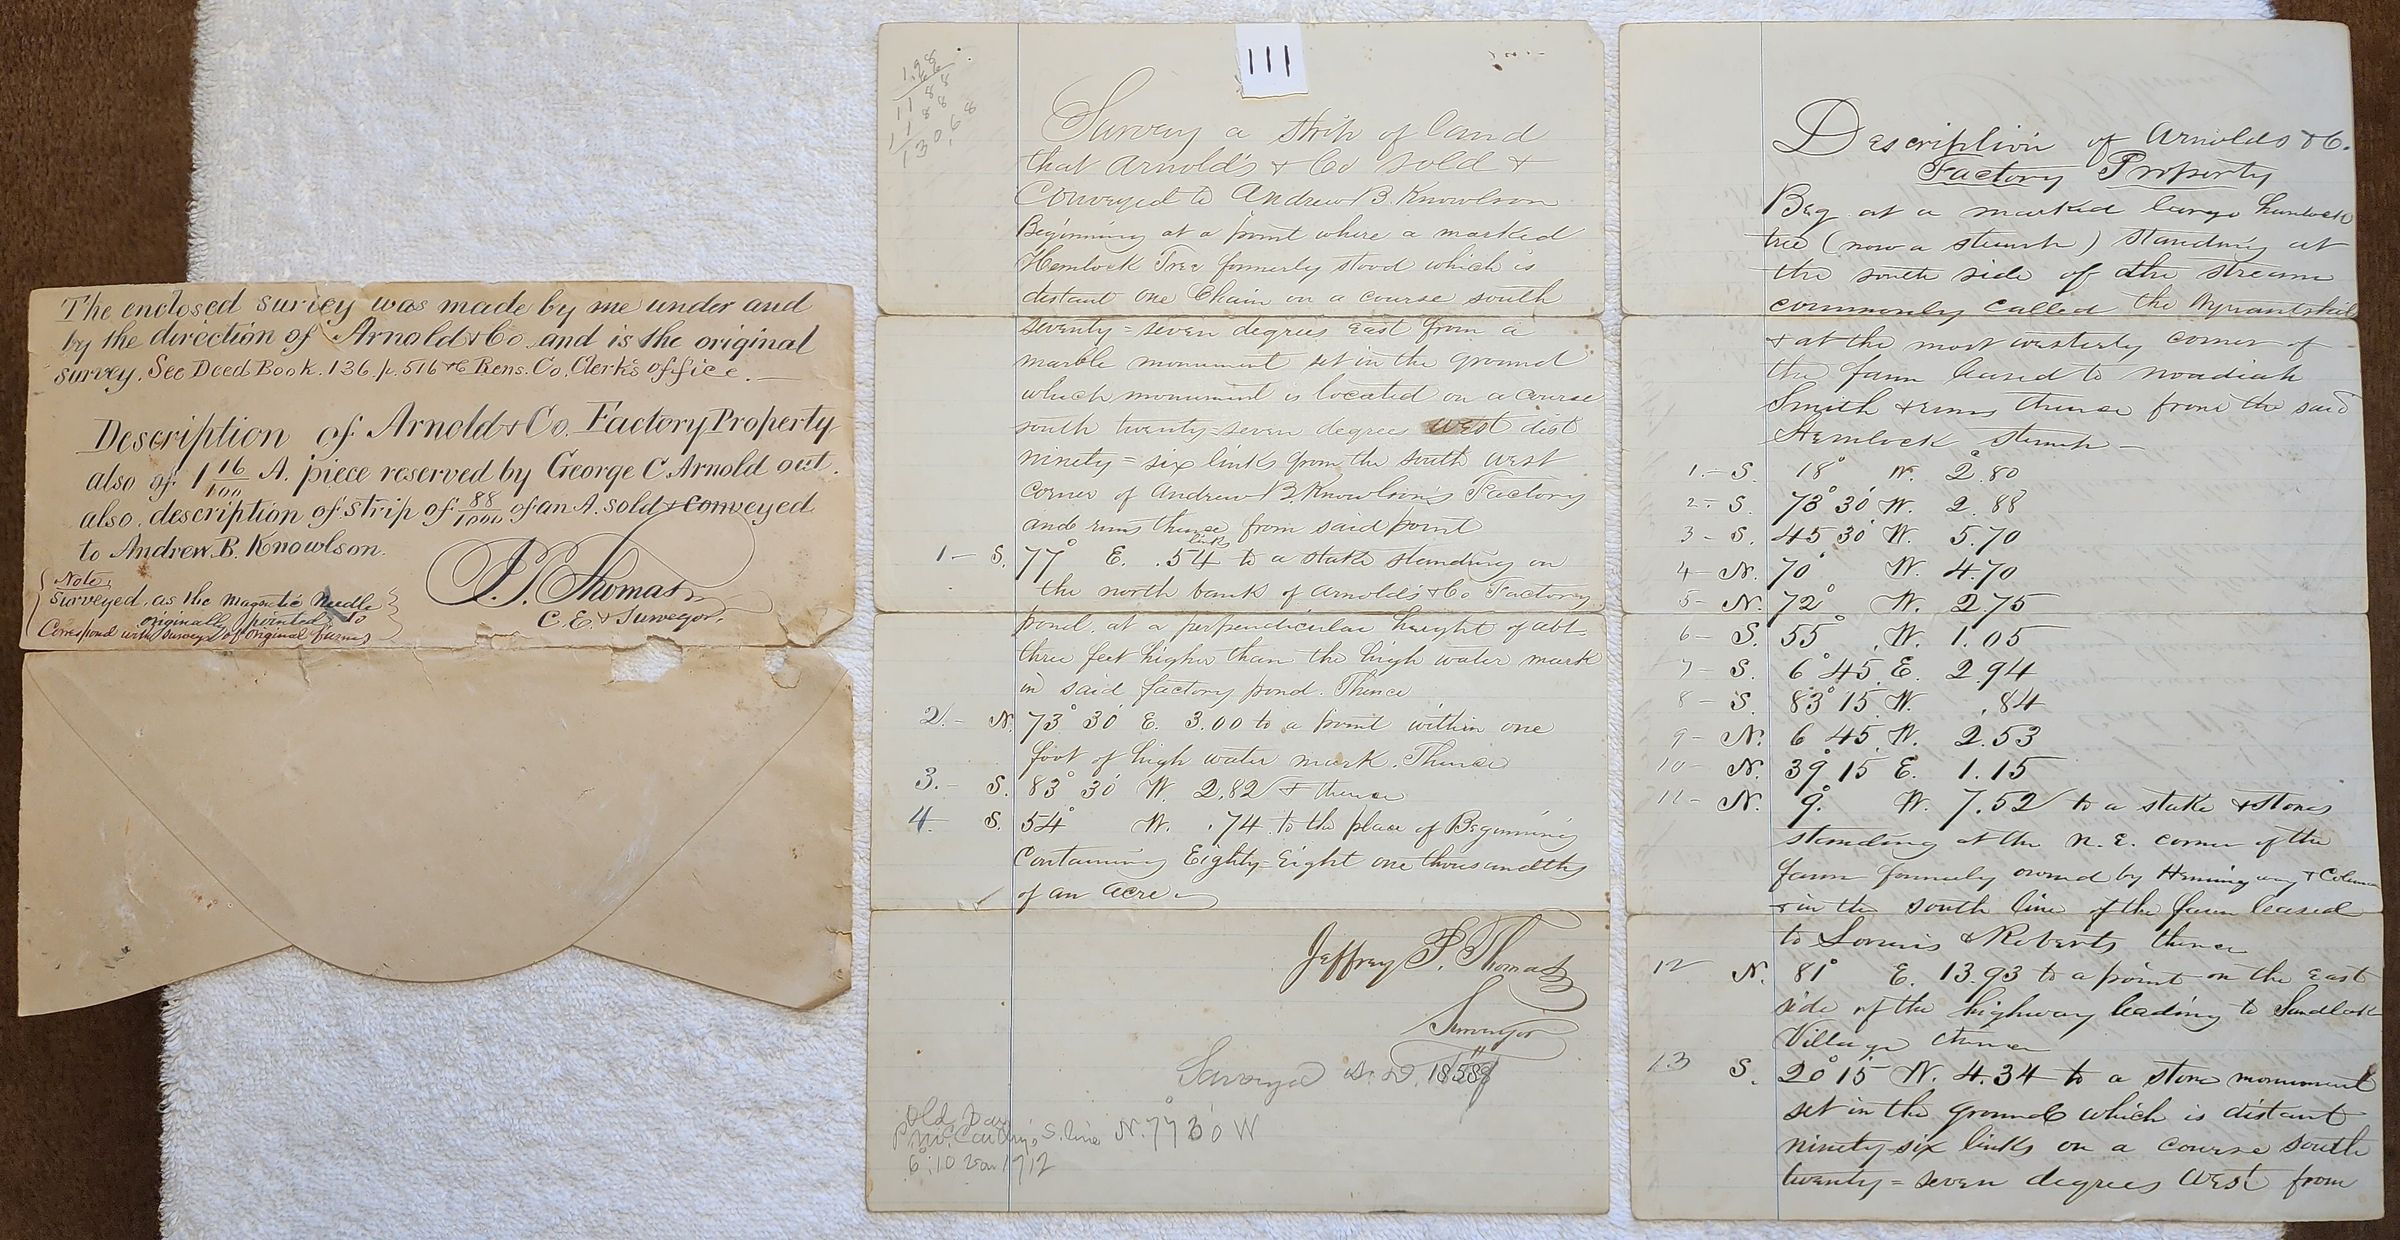 The enclosed survey was made by me under and
by the direction of Arnold & Co and is the original
survey. See Deed Book. 136 p. 516 &c Rens. Co. Clerk's office. —
Description of Arnold & Co. Factory Property
also of 1 16/100 A. piece reserved by George C. Arnold out.
also. description of strip of 88/1000 of an A. sold & conveyed
to Andrew. B. Knowlson.
J. P. Thomas
C. E. & Surveyor.
Note,
Surveyed, as the Magnetic Needle
originally pointed to
Correspond with Surveys of original farms
111
1.98
.66
1188
1188
130.68
Survey a strip of land
that Arnold's & Co sold &
Conveyed to Andrew B. Knowlson
Beginning at a point where a marked
Hemlock Tree formerly stood which is
distant one Chain on a course south
seventy = seven degrees East from a
marble monument set in the ground
which monument is located on a course
south twenty = seven degrees West dist
ninety = six links from the South West
corner of Andrew B. Knowlson's Factory
and runs thence from said point
1 — S. 77° E. .54 links to a stake standing on
the north bank of Arnold's & Co Factory
pond. at a perpendicular height of abt
three feet higher than the high water mark
in said factory pond. Thence
2. — N. 73° 30' E. 3.00 to a point within one
foot of high water mark. Thence
3. — S. 83° 30' W. 2.82 & thence
4. S. 54° W. .74 to the place of Beginning
Containing Eighty = Eight one thousandths
of an acre
Jeffrey P. Thomas
Surveyor
Surveyed A. D. 1858
Old
S. line N. 77° 30' W
1912
Description of Arnolds & Co.
Factory Property
Beg. at a marked large hemlock
tree (now a stump) standing at
the south side of the stream
commonly called the Wynantskil
& at the most westerly corner of
the farm leased to Noadiah
Smith & runs thence from the said
Hemlock stump —
1. — S. 18° W. 2.80
2 — S. 73° 30' W. 2.88
3 — S. 45 30' W. 5.70
4 — N. 70° W. 4.70
5 — N. 72° W. 2.75
6 — S. 55° W. 1.05
7 — S. 6° 45 E. 2.94
8 — S. 83° 15 W. .84
9 — N. 6 45 W. 2.53
10 — N. 39° 15 E. 1.15
11 — N. 9° W. 7.52 to a stake & stones
standing at the N. E. corner of the
farm formerly owned by Hemingway & Coleman
& in the south line of the farm leased
to Loomis & Roberts thence
12 N. 81° E. 13.93 to a point on the East
side of the highway leading to Sandlake
Village thence
13 S. 20° 15' W. 4.34 to a stone monument
set in the ground which is distant
ninety-six links on a course south
twenty = seven degrees West from